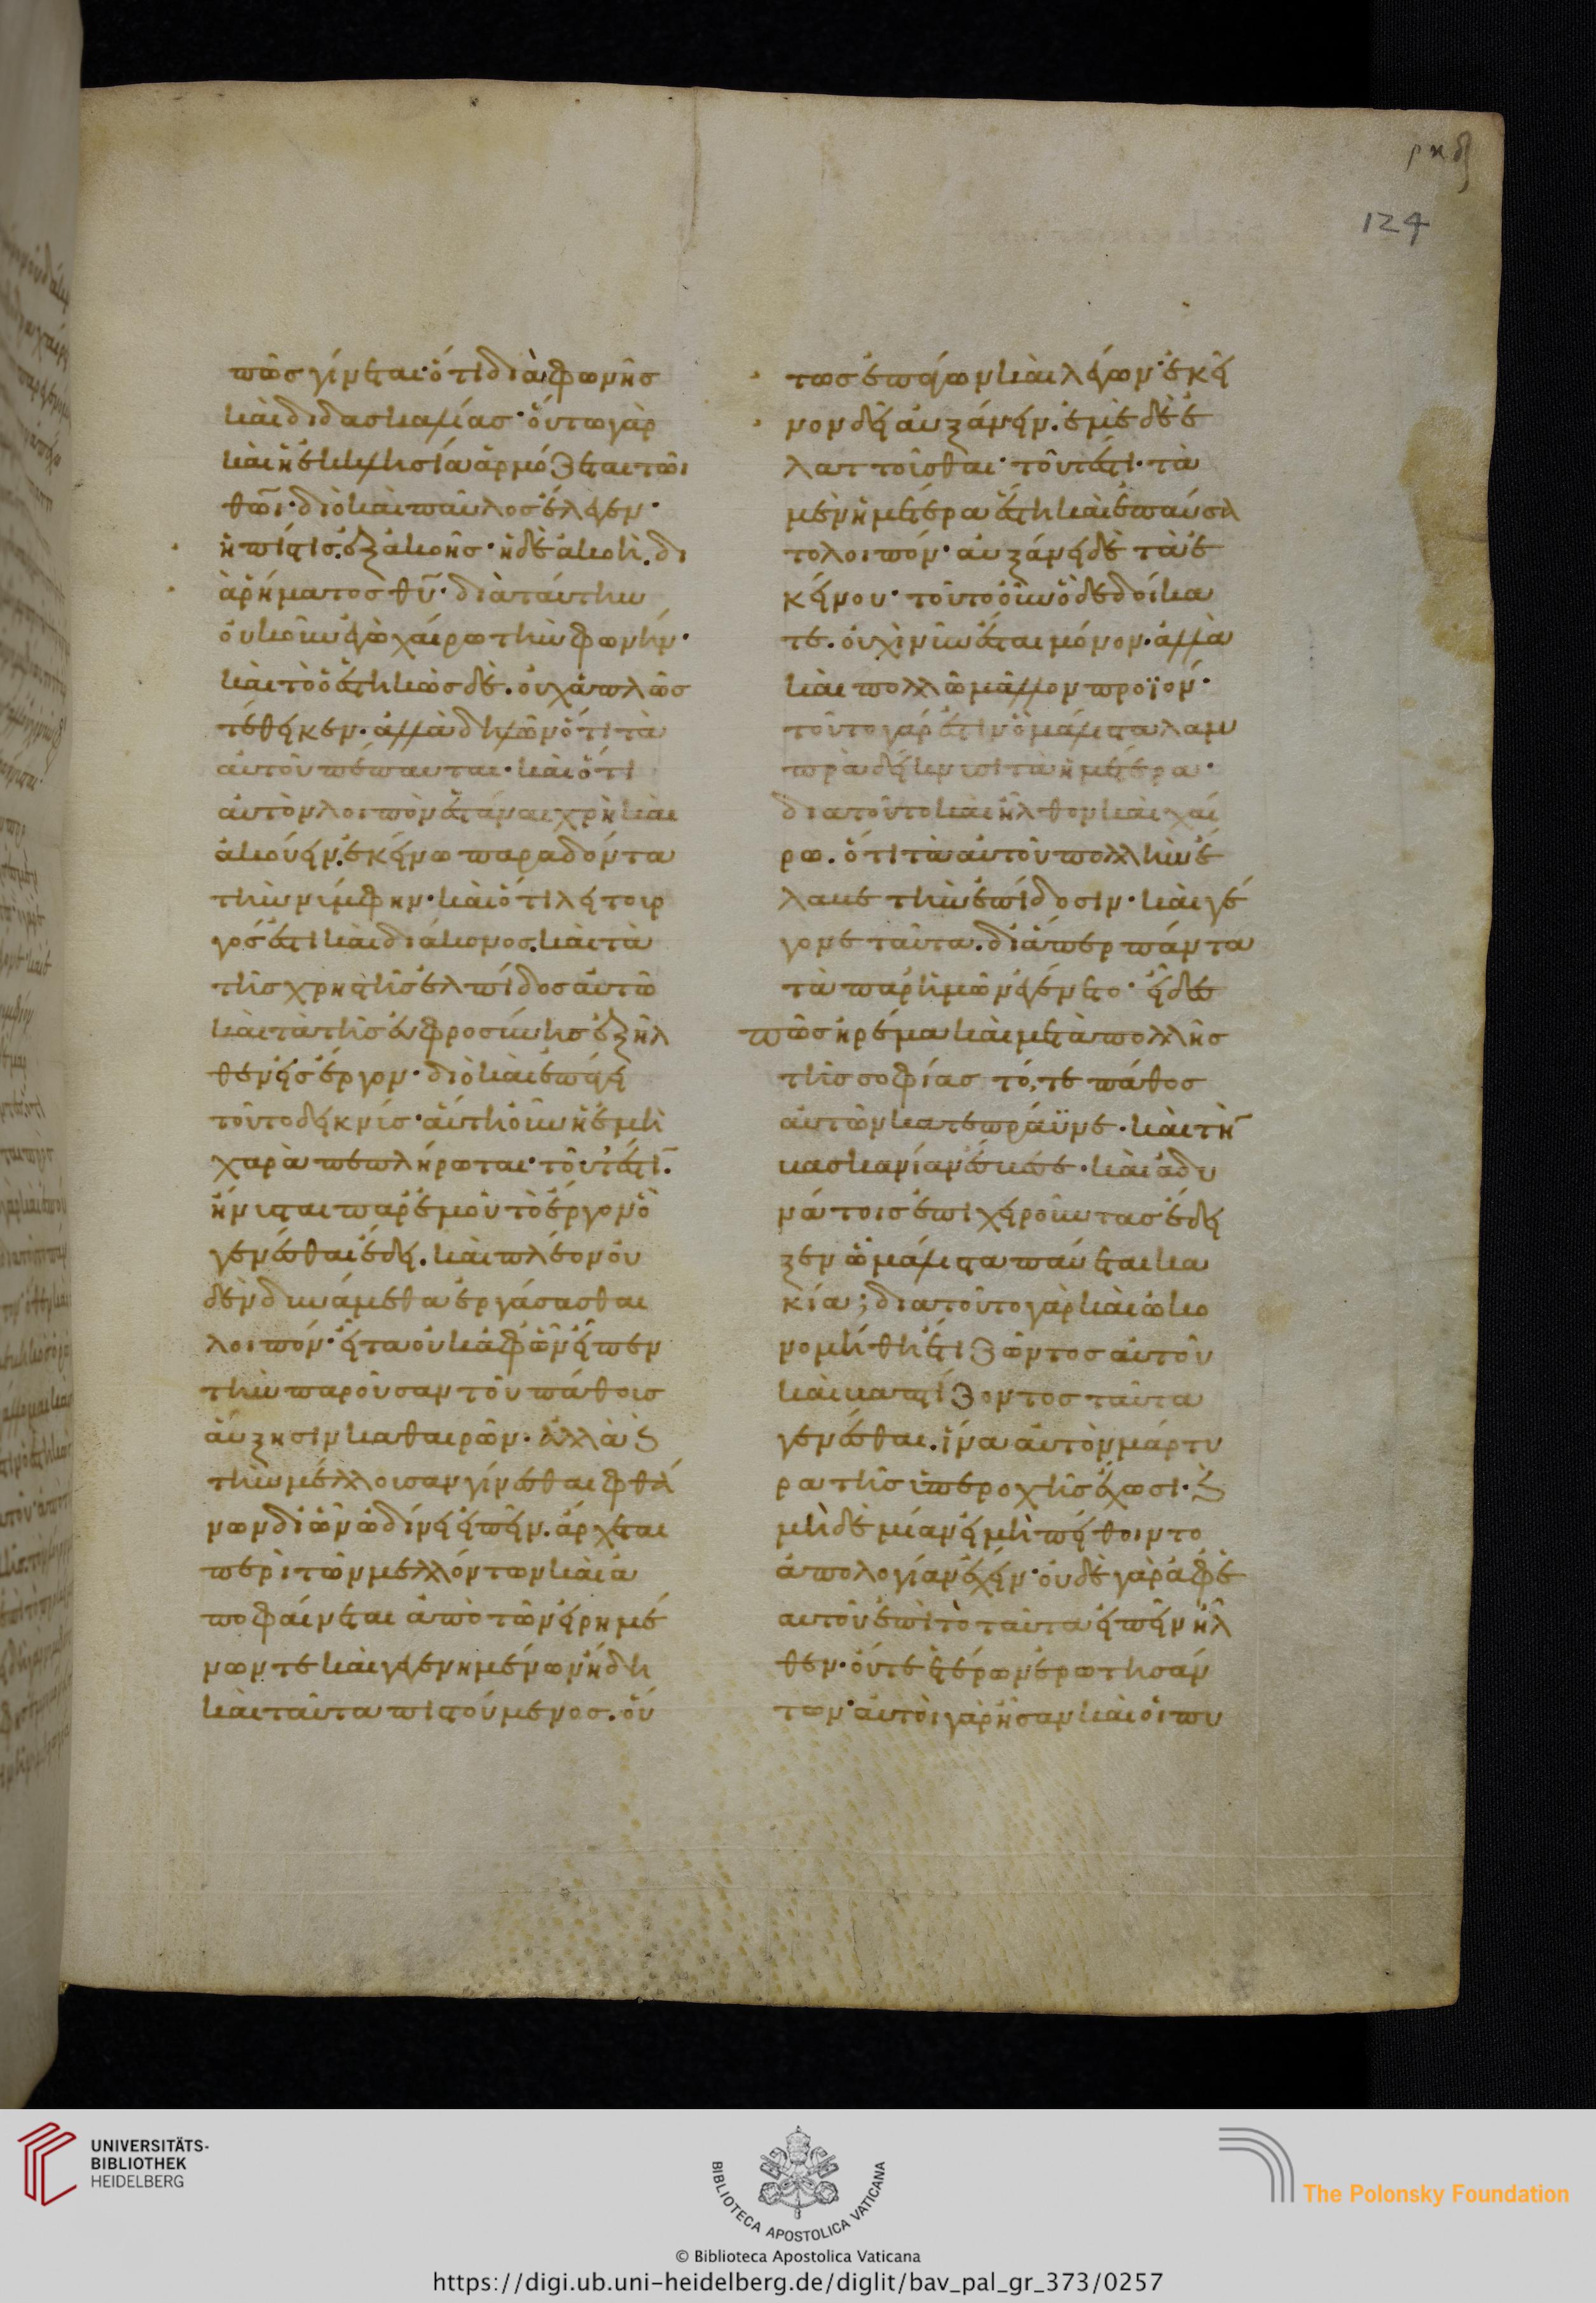 ρκδ
124
πῶς γίνεται· ὅτι διὰ φωνῆς
καὶ διδασκαλίας· οὕτω γὰρ
καὶ ἡ ἐκκλησία ἁρμόζεται τῶι
θω̅ι· διὸ καὶ παῦλος ἔλεγεν·
ἡ πίστις. ἐξ ἀκοῆς· ἡ δὲ ἀκοὴ. δι
ὰ ῥήματος θυ̅· διὰ ταύτην
οὐκοῦν ἐγὼ χαίρω τὴν φωνήν·
καὶ τὸ ὁ ἑστηκὼς δὲ. οὐχ ἁπλῶς
τέθεικεν. ἀλλὰ δηλῶν ὅτι τὰ
αὐτοῦ πέπαυται· καὶ ὅτι
αὐτὸν λοιπὸν ἑστάναι χρὴ καὶ
ἀκούειν. ἐκείνω παραδόντα
τὴν νύμφην· καὶ ὅτι λειτουρ
γός ἐστι καὶ διάκονος. καὶ τὰ
τῆς χρηστῆς ἐλπίδος αὐτῶ
καὶ τὰ τῆς εὐφροσύνης ἐξῆλ
θεν εἰς ἔργον· διὸ καὶ ἐπάγει
τοῦτο δεικνύς· αὕτη οὖν ἡ ἐμὴ
χαρὰ πεπλήρωται· τοῦτέστι̅.
ἤνυσται παρ' ἐμοῦ τὸ ἔργον ὃ
γενέσθαι ἔδει. καὶ πλέον οὐ
δὲν δυνάμεθα ἐργάσασθαι
λοιπόν· εἶτα οὐκ ἀφ' ὧν εἶπεν
τὴν παροῦσαν τοῦ πάθους
αὔξησιν καθαιρῶν· ἀλλὰ ϗ
τὴν μέλλουσαν γίνεσθαι φθά
νων δι' ὧν ὠδίνει εἰπεῖν. ἄρχεται
περὶ τῶν μελλόντων καὶ ἀ
ποφαίνεται ἀπὸ τῶν εἰρημέ
νων τε καὶ γεγενημένων ἤδη
καὶ ταῦτα πιστούμενος. οὕ
τως ἐπάγων καὶ λέγων· ἐκεῖ
νον δεῖ αὐξάνειν. ἐμὲ δὲ ἐ
λαττοῦσθαι· τοῦτέστι· τὰ
μὲν ἡμέτερα ἔστη καὶ ἐπαύσα
το λοιπόν· αὐξάνει δὲ τὰ ἐ
κείνου· τοῦτο οὖν ὃ δεδοίκα
τε. οὐχὶ νῦν ἔσται μόνον. ἀλλὰ
καὶ πολλῶ μᾶλλον προϊόν·
τοῦτο γάρ ἐστιν ὃ μάλιστα λαμ
πρὰ δείκνυσι τὰ ἡμέτερα·
διατοῦτο καὶ ἦλθον καὶ χαί
ρω. ὅτι τὰ αὐτοῦ πολλὴν ἔ
λαβε τὴν ἐπίδοσιν· καὶ γέ
γονε ταῦτα. δι' ἅπερ πάντα
τὰ παρ' ἡμῶν ἐγένετο· εἶδες
πῶς ἠρέμα καὶ μετὰ πολλῆς
τῆς σοφίας τό, τε πάθος
αὐτῶν κατεπράϋνε· καὶ τὴ̅
βασκανίαν ἔσβεσε· καὶ ἀδυ
νάτοις ἐπιχειροῦντας ἔδει
ξεν ὧ μάλιστα παύεται κα
κία; διατοῦτο γὰρ καὶ ὠκο
νομήθη ἔτι ζῶντος αὐτοῦ
καὶ βαπτίζοντος ταῦτα
γενέσθαι. ἵνα αὐτὸν μάρτυ
ρα τῆς ὑπεροχῆς ἔχωσι· ϗ
μὴδὲ μίαν εἰ μὴ πείθοιντο
ἀπολογίαν ἔχειν· οὐδὲ γὰρ ἀφ' ἑ
αυτοῦ ἐπὶ τὸ ταῦτα εἰπεῖν ἦλ
θεν· οὔτε ἑτέρων ἐρωτησάν
των· αὐτοὶ γὰρ ἦσαν καὶ οἱ πυ
UNIVERSITÄTS-
BIBLIOTHEK
HEIDELBERG
BIBLIOTECA APOSTOLICA VATICANA
The Polonsky Foundation
© Biblioteca Apostolica Vaticana
https://digi.ub.uni-heidelberg.de/diglit/bav_pal_gr_373/0257